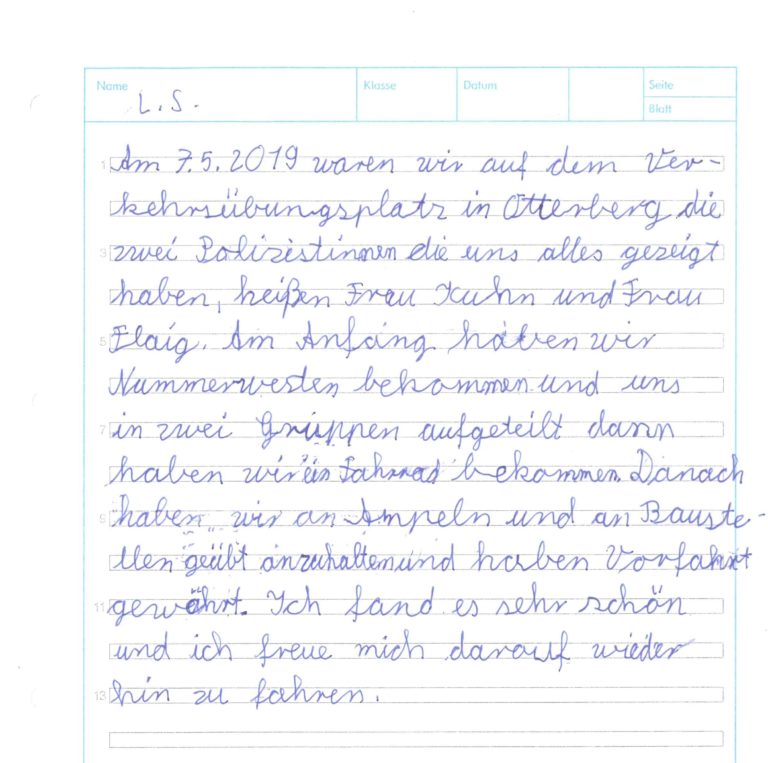 Name
L.S.
Klasse
Datum
Seite
Blatt
1 Am 7.5.2019 waren wir auf dem Ver-
kehrsübungsplatz in Otterberg die
3 zwei Polizistinnen die uns alles gezeigt
haben, heißen Frau Kuhn und Frau
5 Flaig. Am Anfang haben wir
Nummerwesten bekommen und uns
7 in zwei Gruppen aufgeteilt dann
haben wir ein Fahrrad bekommen. Danach
9 haben wir an Ampeln und an Bauste-
llen geübt anzuhalten und haben Vorfahrt
11 gewährt. Ich fand es sehr schön
und ich freue mich darauf wieder
13 hin zu fahren.